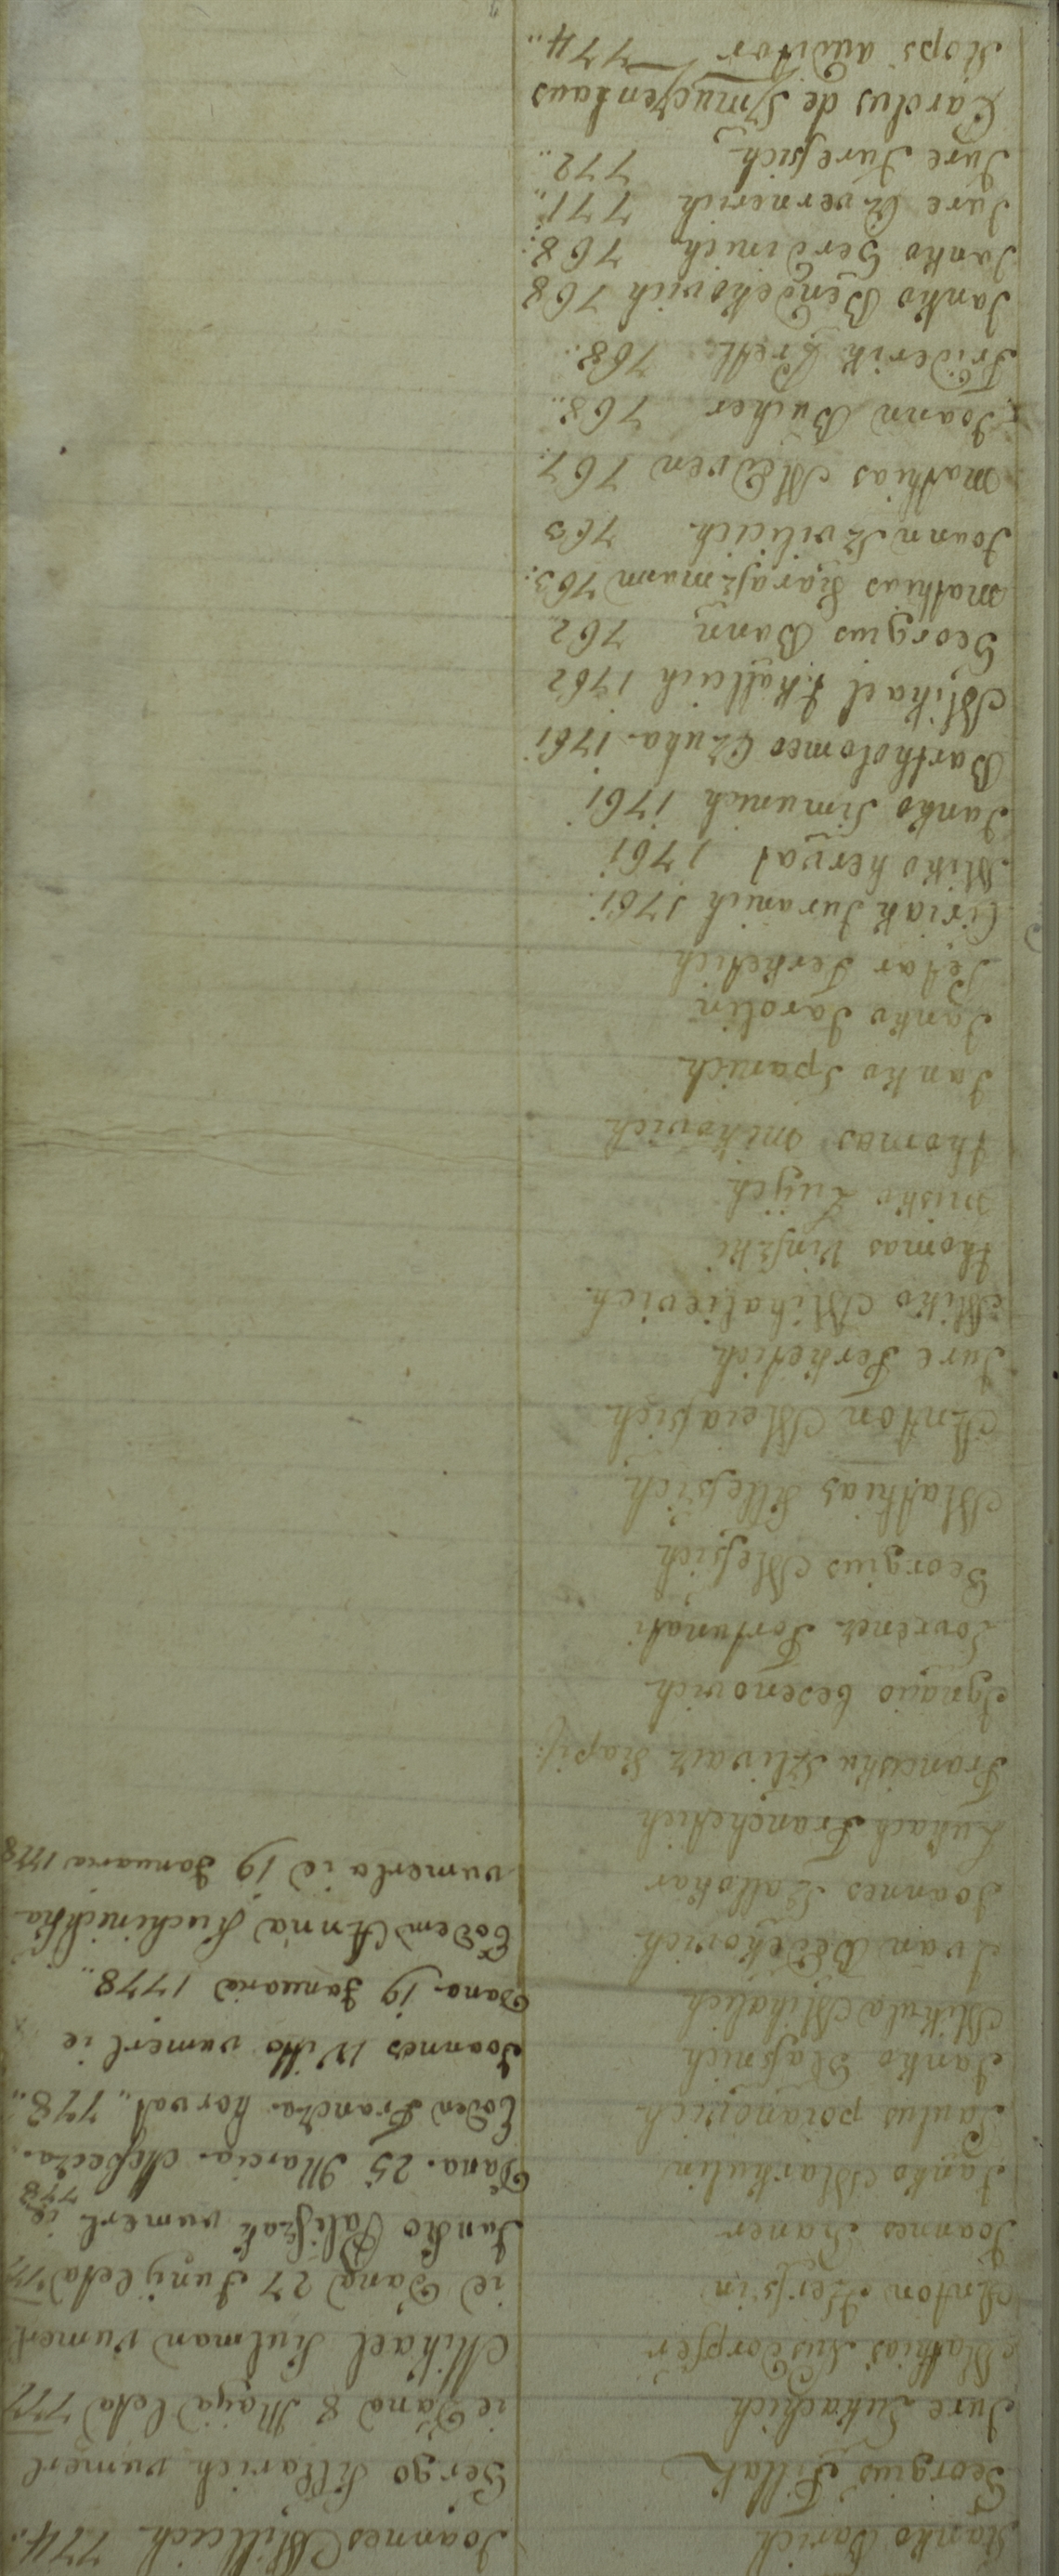 Stanko Barich
Georgius Fillak
Jure Lukachich
Mathias Nusdorpfer
Anton Herfsin
Joannes Haner
Janko Markulin
Paulus poianovich
Janko Klasnich
Mikula Mihalich
Ivan Vidakovich
Joannes Zallokar
Lukach Franchetich
Francisku Szlivacz Kapij:
Ignacio besenovich
Lovrencz Fortunati
Georgius Messich
Mathias Millessich
Anton Meiassich
Jure Ferketich
Miko Mihalievich
thomas Vinszki
misko Lujich
thomas mikovich
Janko Spanich
Janko Jarolin
Petar Ferketich
Ciriak Juranich 1761
Miko hervat 1761
Janko Simunich 1761
Bartholomeo Czuka 1761
Mihael Skallcich 1762
Georgius Bann 762
Mathias Haraszmann 763.
Joann Szvilicich. 763
Mathias Medven 767.
Joann Bucher 768..
Friderik Krell. 768..
Janko Bendekovich 768
Janko Gerdinich 768:
Jure Czvernerich 771..
Jure Juressich 772..
Carolus de Smuczenhaus
Stops auditor 774..
Joannes Millicich 774..
Gergo Millarich vumerl
ie Dana 8 Maya leta 777
Mihael Kulman Vumerl
ie Dana 27 Juny leta 777
Janko Paliszak vumerl ie 778
Dana. 25 Marcia. Meszecza.
Eoden Francza. horvat,, 778..
Joannes Witto vumerl ie
Dana 19 Januara 1778..
Eodem Anna Kuchinichka
vumerla ie 19 Januara 1778